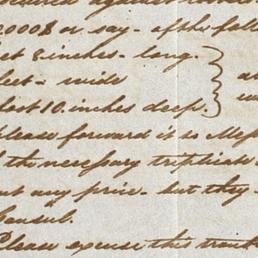 2000$ or say - of the foll
8 inches - long.
feet - wide
feet 10 inches deep.
Please forward it to Mess
the necessary triplicate
any price - but they
Consul.
Please excuse this troub